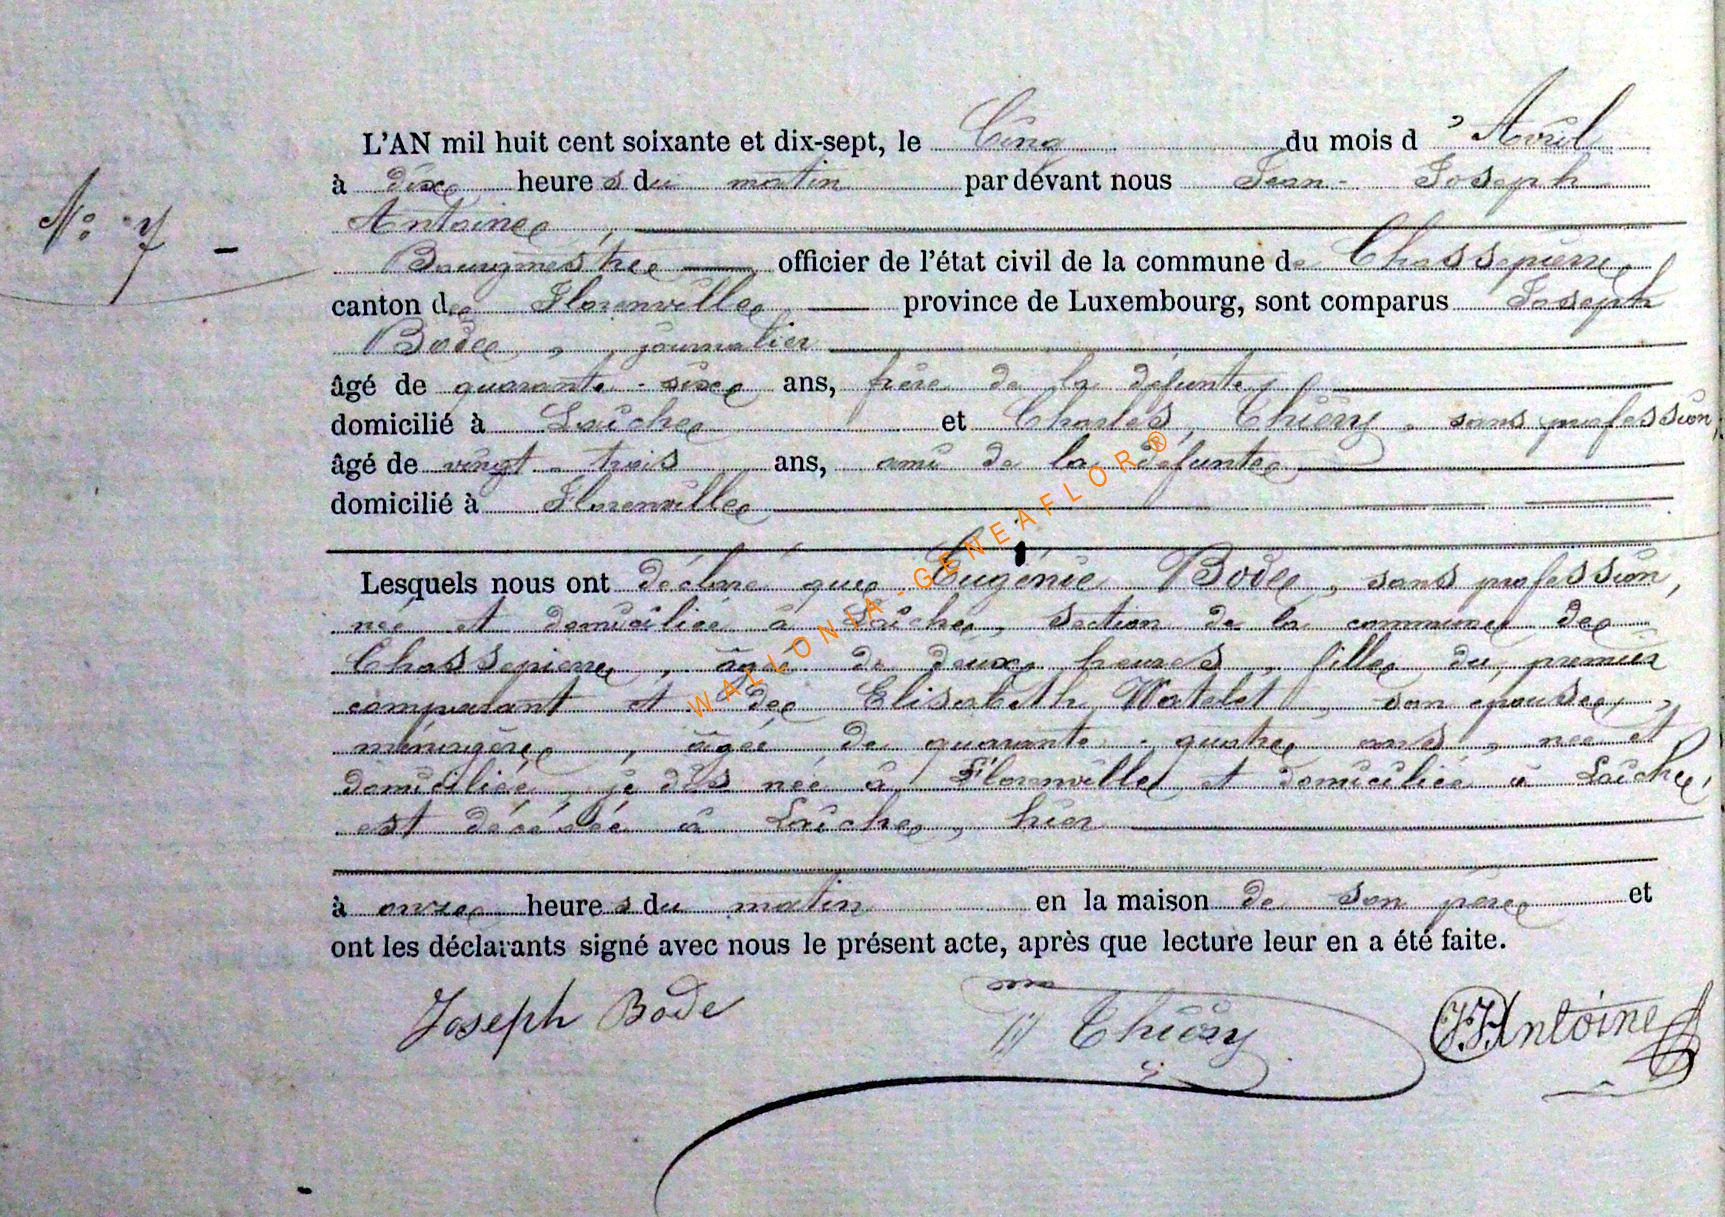 L'AN mil huit cent soixante et dix-sept, le Cinq du mois d'Avril
à dix heures du matin par dévant nous Jean-Joseph
N° 7 -
Antoine,
Bourgmestre officier de l'état civil de la commune de Chassepierre
canton de Florenville province de Luxembourg, sont comparus Joseph
Bode, journalier
âgé de quarante-six ans, frère de la défunte,
domicilié à Laiche et Charles, Thiéry, sans profession,
âgé de vingt-trois ans, ami de la défunte,
domicilié à Florenville
Lesquels nous ont déclaré que Eugénie Bode, sans profession,
née et domiciliée à Laiche, section de la commune de
Chassepierre, âgée de deux heures, fille du premier
comparant et de Elisabeth Watelet, son épouse,
ménagère, âgée de quarante-quatre ans, née et
domiciliée, je dis née à Florenville et domiciliée à Laiche,
est décédée à Laiche, hier
à onze heures du matin en la maison de son père et
ont les déclarants signé avec nous le présent acte, après que lecture leur en a été faite.
Joseph Bode Thiéry J.J. Antoine
WALLONIA-GENEAFLOR®